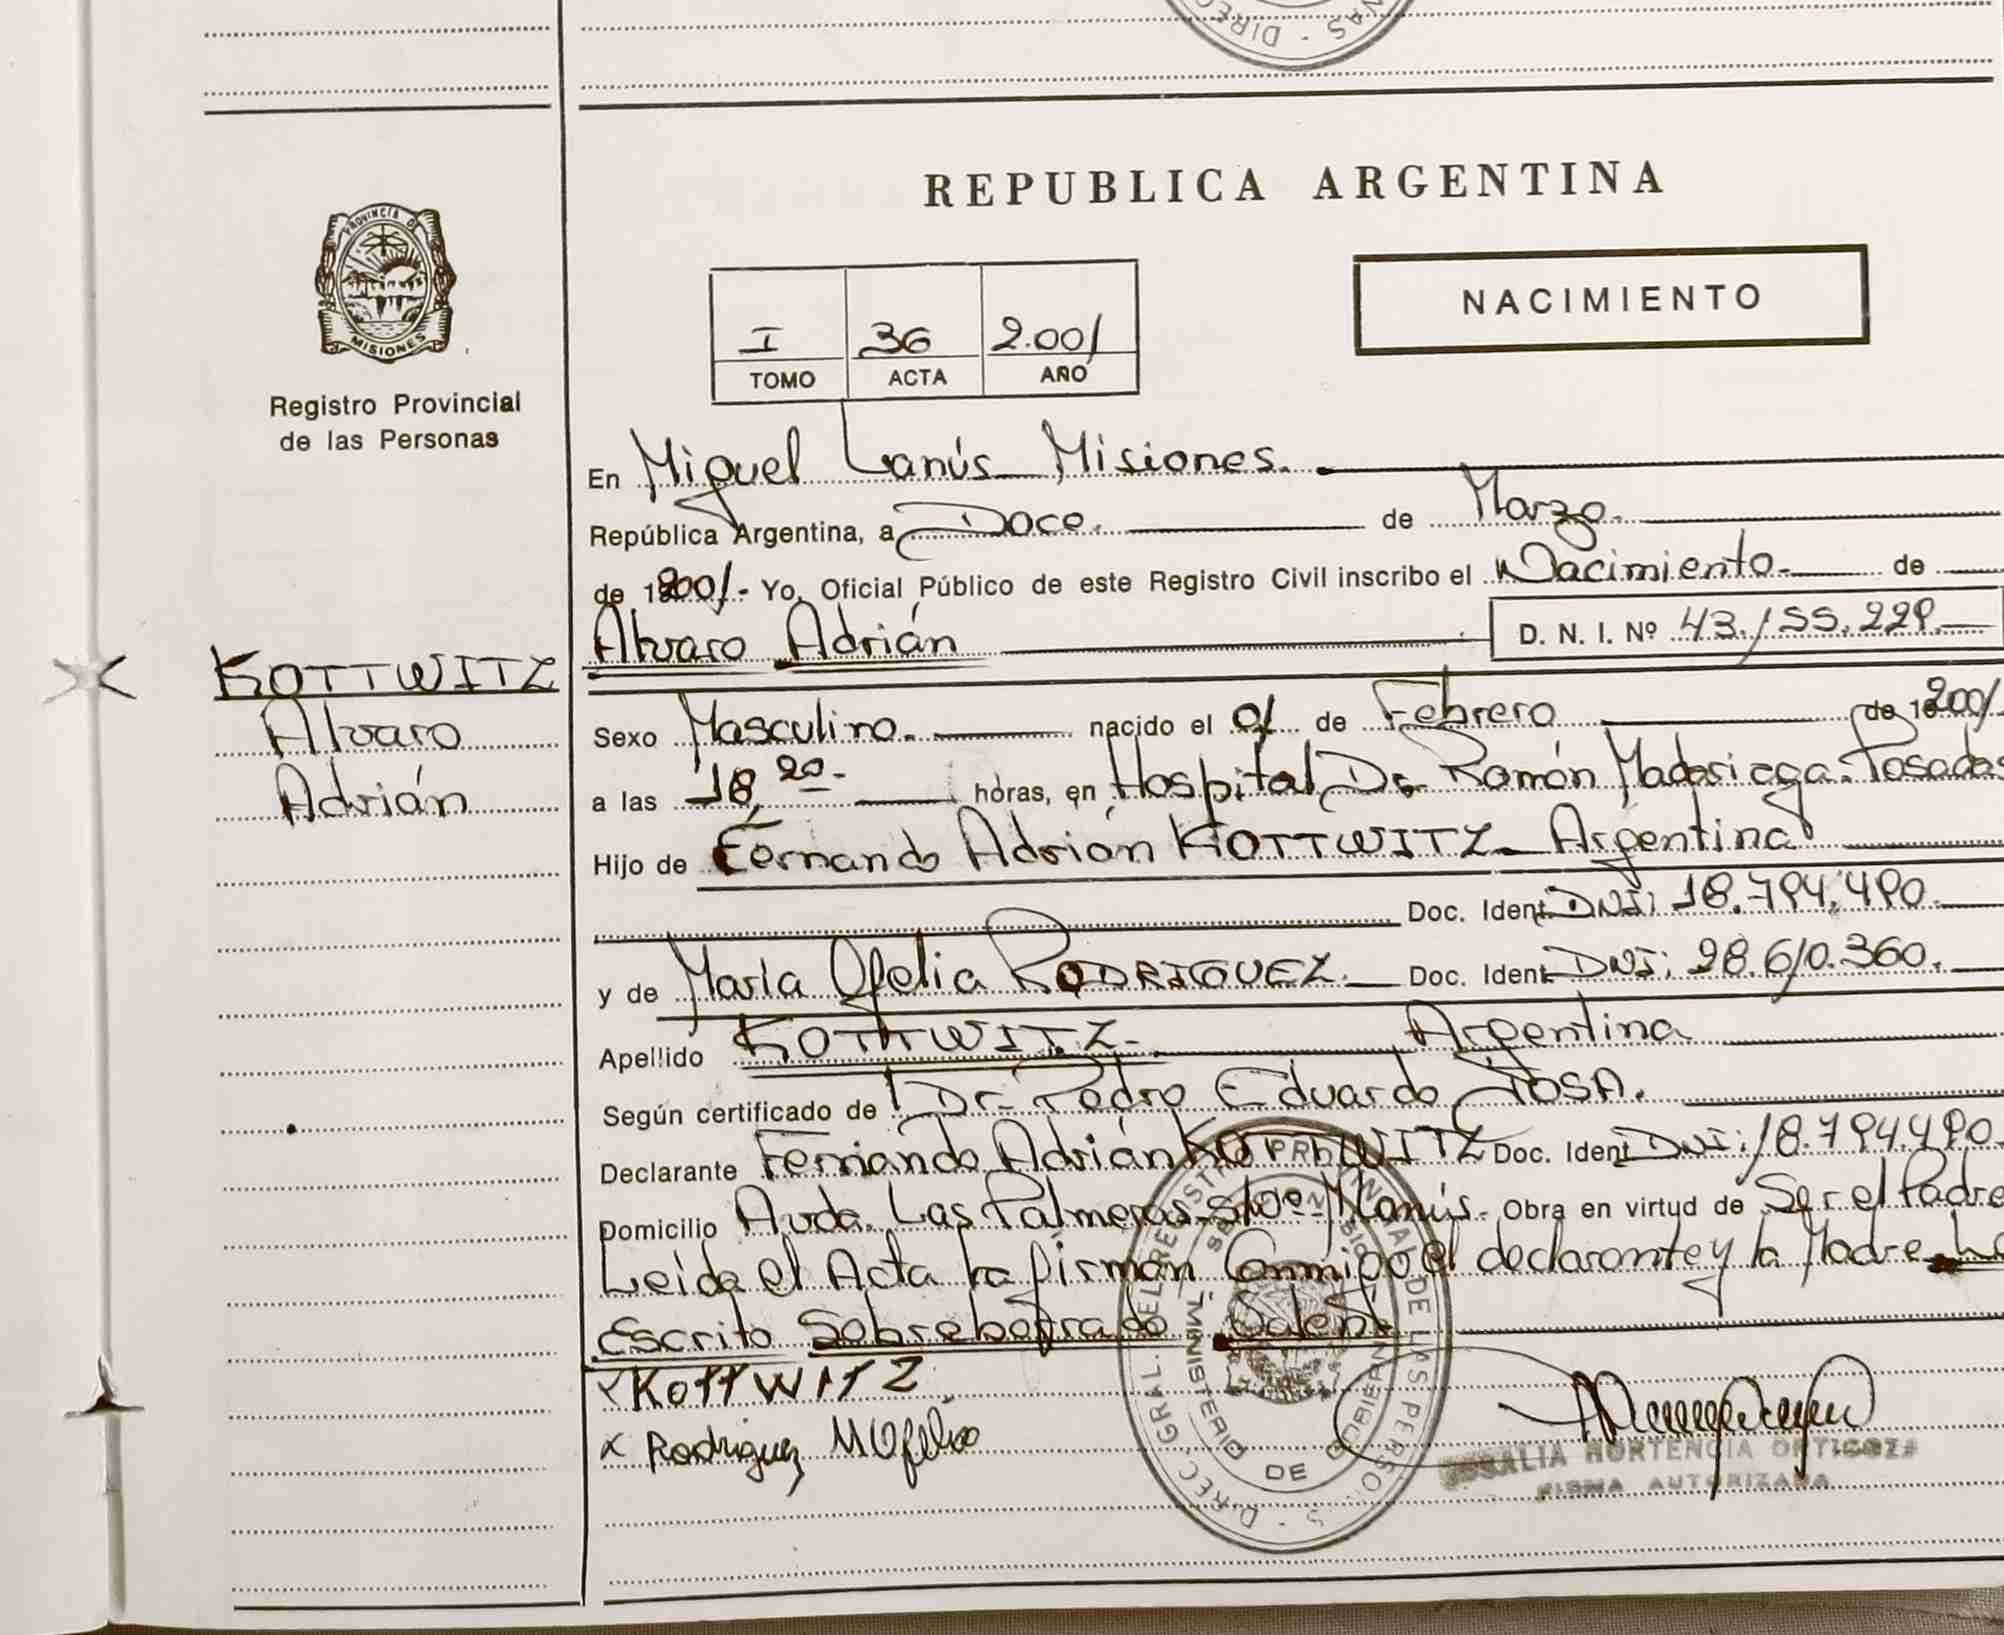 REPUBLICA ARGENTINA
PROVINCIA DE
MISIONES
Registro Provincial
de las Personas
NACIMIENTO
I 36 2.001
TOMO ACTA AÑO
En Miguel Lanús Misiones.
República Argentina, a Doce. de Marzo.
de 2001.- Yo, Oficial Público de este Registro Civil inscribo el Nacimiento. de
Alvaro Adrián D. N. I. Nº 43.155.229.
KOTTWITZ
Alvaro
Adrián
Sexo Masculino. nacido el 01 de Febrero de 2001
a las 18,20.- horas, en Hospital Dr. Ramón Madariaga. Posadas
Hijo de Fernando Adrián KOTTWITZ. Argentina
Doc. Ident. DNI: 18.794.490.
y de María Ofelia RODRIGUEZ. Doc. Ident. DNI: 28.610.360.
Apellido KOTTWITZ.- Argentina
Según certificado de Dr. Pedro Eduardo
Declarante Fernando Adrián KOTTWITZ Doc. Ident DNI: 18.794.490.
Domicilio Avda. Las Palmeras Obra en virtud de Ser el Padre
Leida el Acta la firman Conmigo el declarante y la Madre. Lo
Escrito Sobreborrado
x KOTTWITZ
x Rodriguez M Ofelia
HORTENCIA
FIRMA AUTORIZADA
MINISTERIO DE GOBIERNO